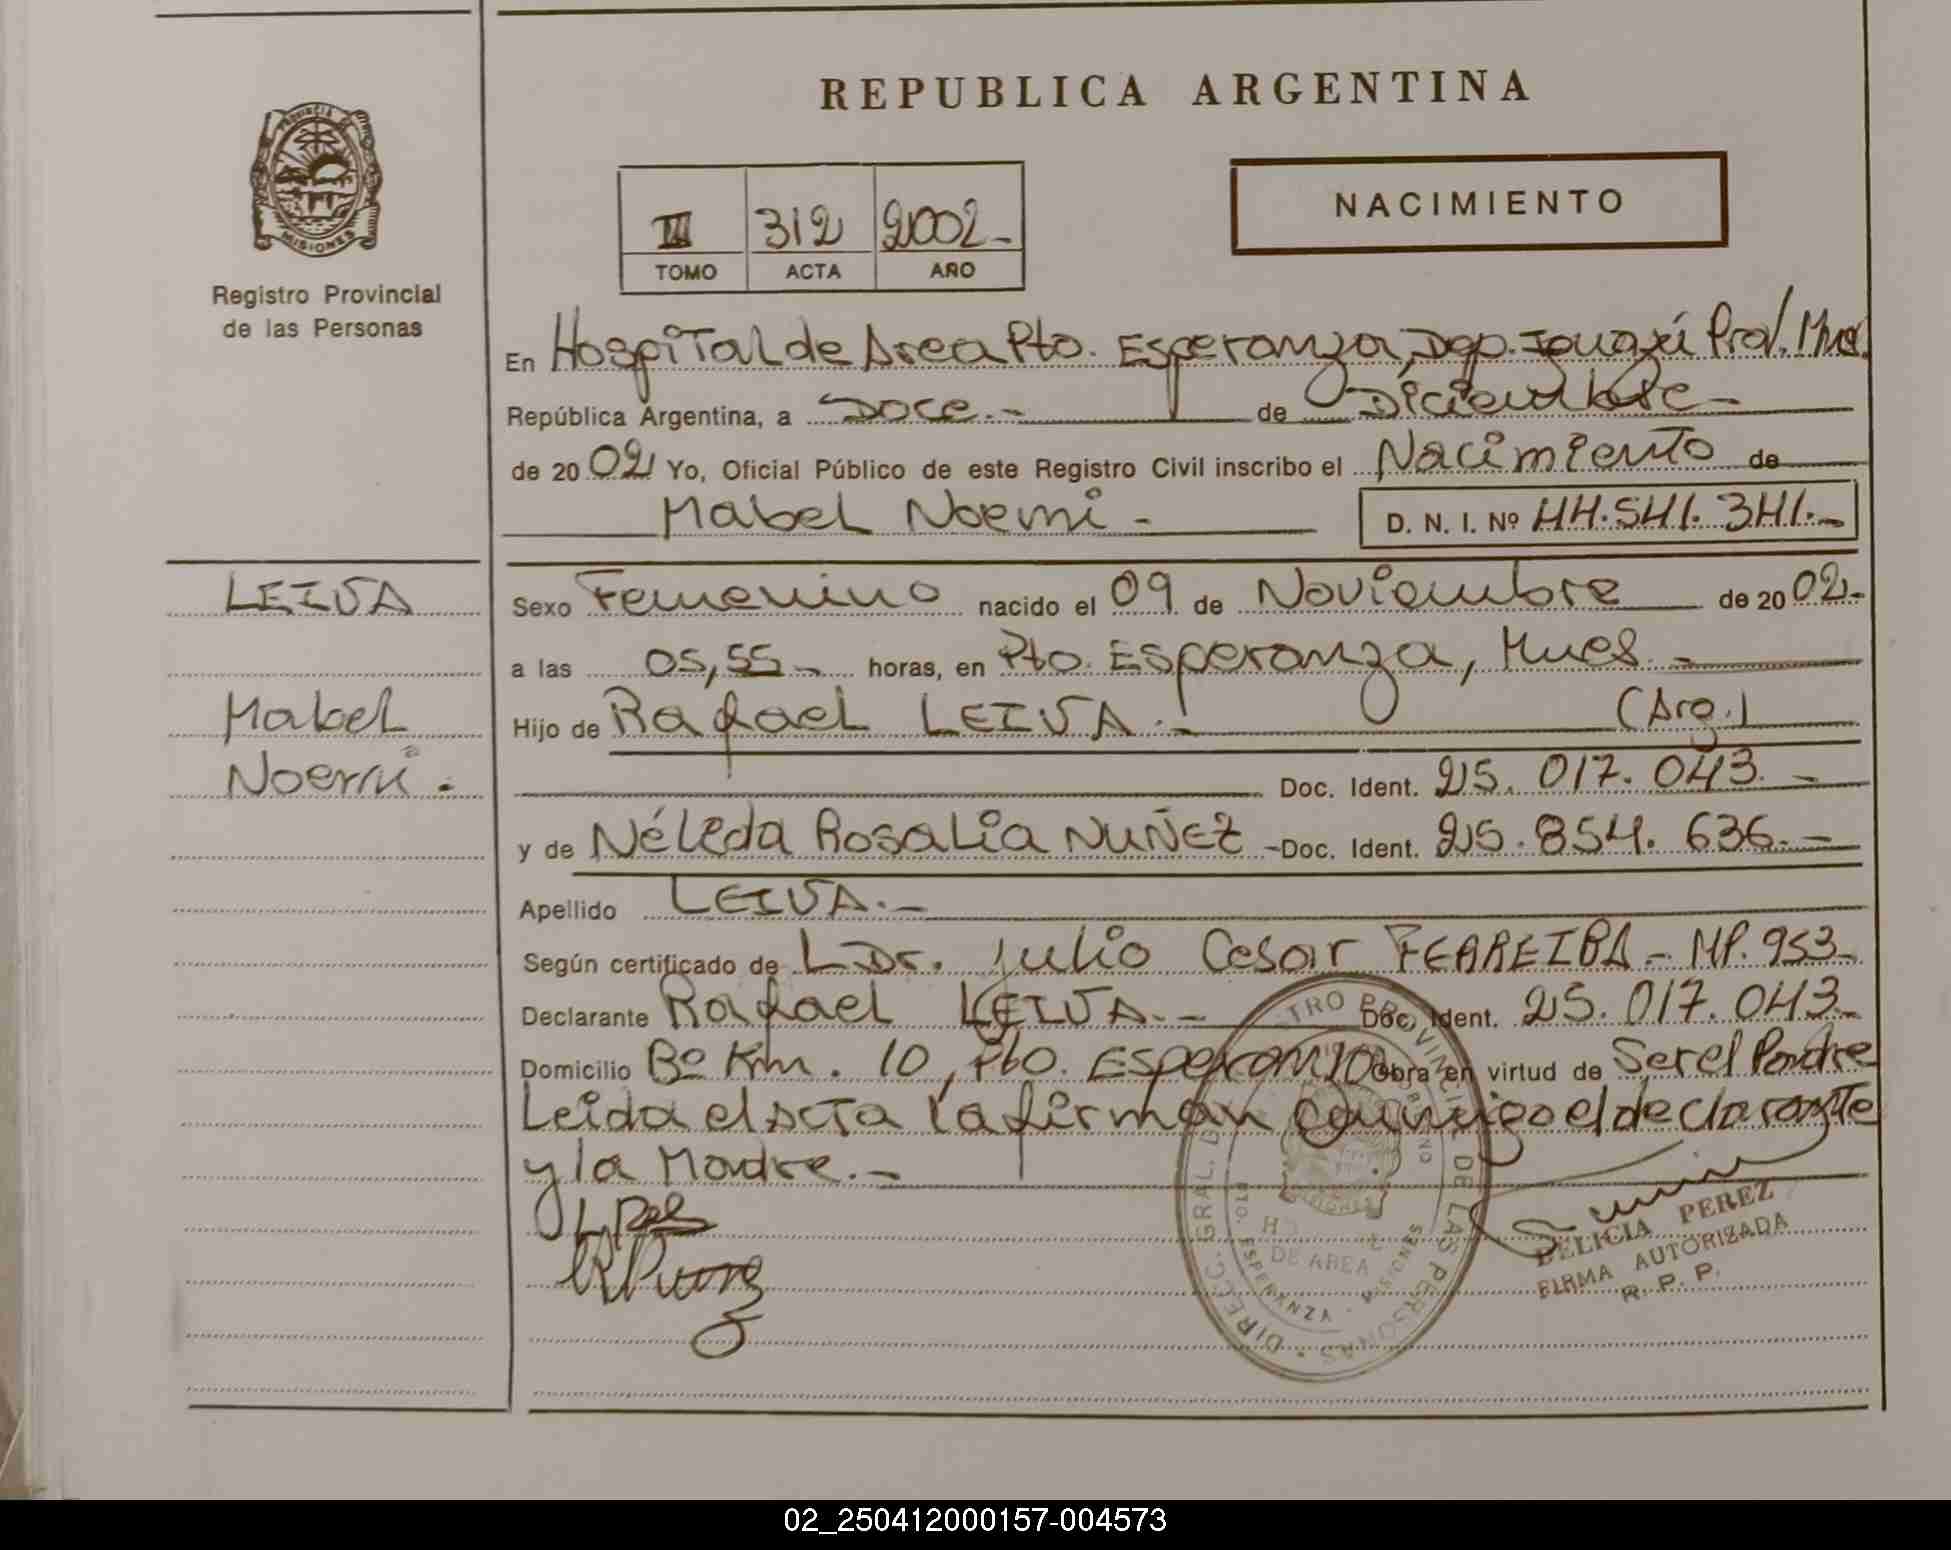 REPUBLICA ARGENTINA
PROVINCIA DE
MISIONES
Registro Provincial
de las Personas
III 312 2002-
TOMO ACTA AÑO
NACIMIENTO
En Hospital de Area Pto. Esperanza, Dep. Iguazú Prov. Mnes.
República Argentina, a Doce.- de Diciembre-
de 2002 Yo, Oficial Público de este Registro Civil inscribo el Nacimiento de
Mabel Noemi - D. N. I. Nº 44.541.341.-
LEIVA
Sexo Femenino nacido el 09 de Noviembre de 2002-
a las 05,55- horas, en Pto. Esperanza, Mnes -
Mabel
Noemi -
Hijo de Rafael LEIVA.- (Arg.)
Doc. Ident. 25.017.043.-
y de Nélida Rosalia NUÑEZ - Doc. Ident. 25.854.636.-
Apellido LEIVA.-
Según certificado de L Dr. Julio Cesar FERREIRA - MP. 953-
Declarante Rafael LEIVA.- Doc. Ident. 25.017.043-
Domicilio Bº Km. 10, Pto. Esperanza Obra en virtud de Ser el Padre
Leida el acta la firman conmigo el declarante
y la Madre.-
DIRECC. GRAL. DE PROVINCIAL DE LAS PERSONAS
DE AREA
PTO. ESPERANZA - MISIONES
DELICIA PEREZ
FIRMA AUTORIZADA
R. P. P.
02_250412000157-004573